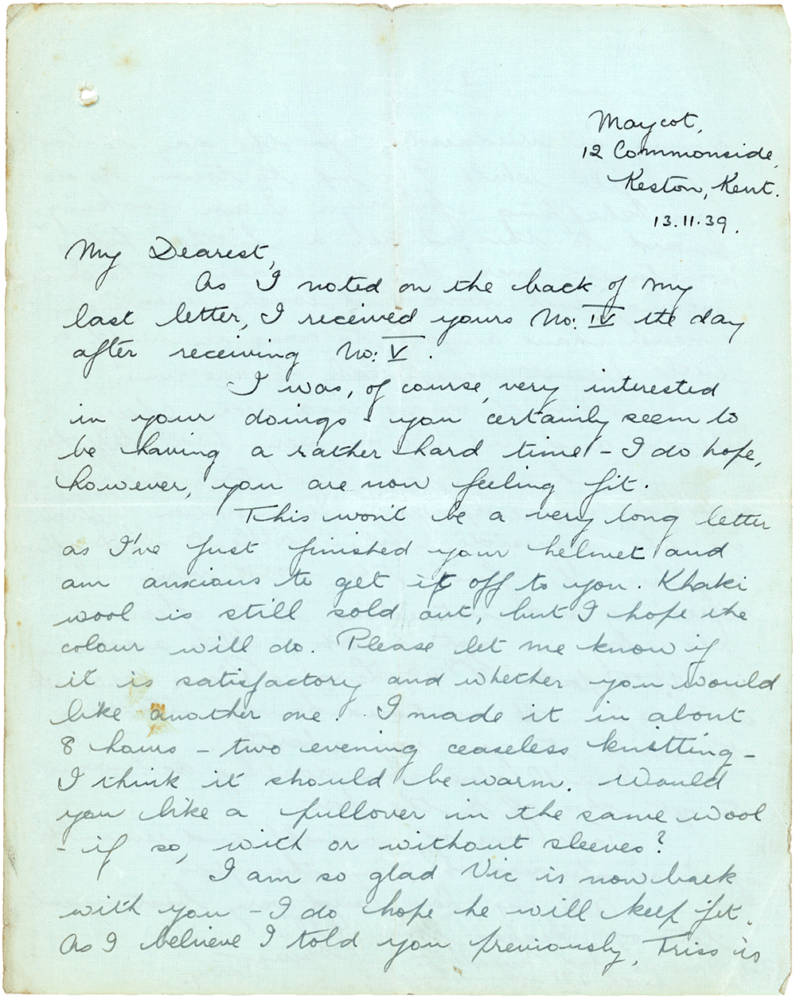 Maycot,
12 Commonside,
Keston, Kent.
13.11.39.
My Dearest,
As I noted on the back of my
last letter, I received yours No: IV the day
after receiving No: V.
I was, of course, very interested
in your doings - you certainly seem to
be having a rather hard time - I do hope,
however, you are now feeling fit.
This won't be a very long letter
as I've just finished your helmet and
am anxious to get it off to you. Khaki
wool is still sold out, but I hope the
colour will do. Please let me know if
it is satisfactory and whether you would
like another one. I made it in about
8 hours - two evening ceaseless knitting -
I think it should be warm. Would
you like a pullover in the same wool
- if so, with or without sleeves?
I am so glad Vic is now back
with you - I do hope he will keep fit.
As I believe I told you previously, Triss is